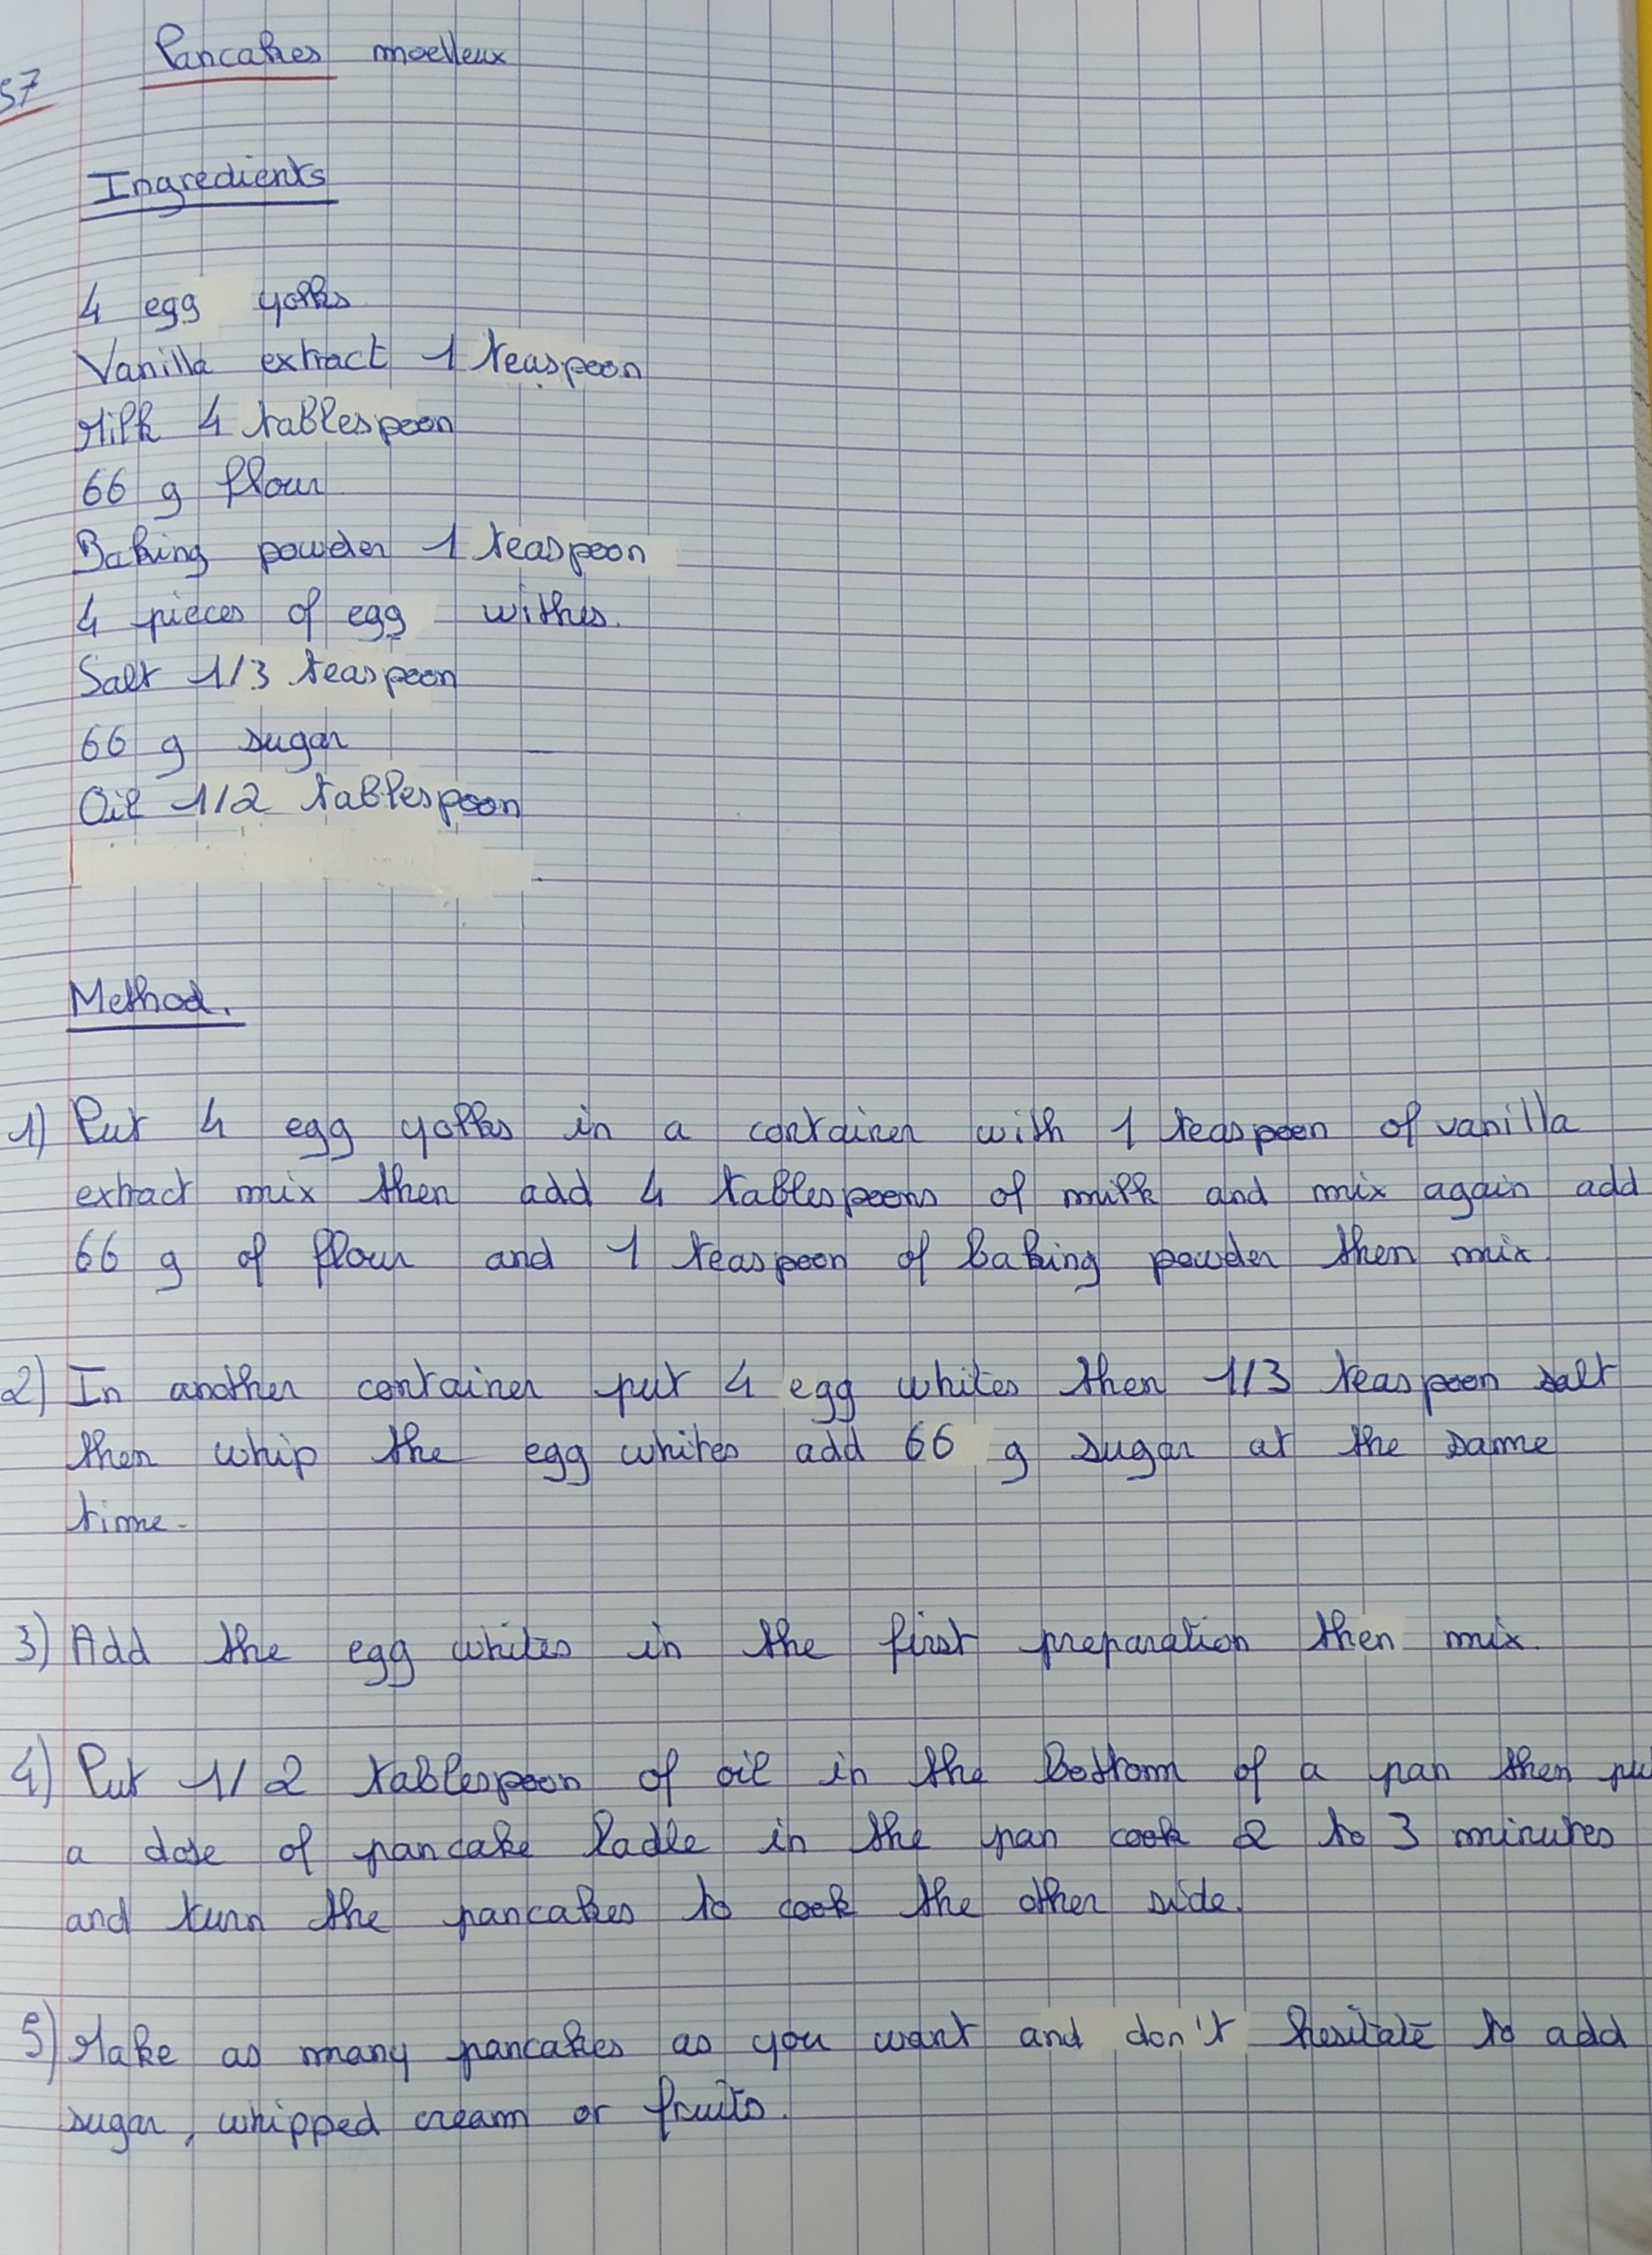 Pancakes moelleux
57
Ingredients
4 egg yolks
Vanilla extract 1 teaspoon
Milk 4 tablespoon
66 g flour
Baking powder 1 teaspoon
4 pieces of egg withes.
Salt 1/3 teaspoon
66 g sugar
Oil 1/2 tablespoon
Method.
1) Put 4 egg yolks in a container with 1 teaspoon of vanilla
extract mix then add 4 tablespoons of milk and mix again add
66 g of flour and 1 teaspoon of baking powder then mix.
2) In another container put 4 egg whites then 1/3 teaspoon salt
then whip the egg whites add 66 g sugar at the same
time.
3) Add the egg whites in the first preparation then mix.
4) Put 1/2 tablespoon of oil in the bottom of a pan then pu
a dose of pancake ladle in the pan cook 2 to 3 minutes
and turn the pancakes to cook the other side.
5) Make as many pancakes as you want and don't hesitate to add
sugar, whipped cream or fruits.